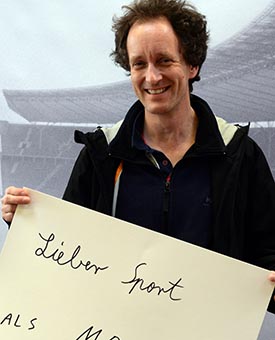 Lieber Sport
ALS